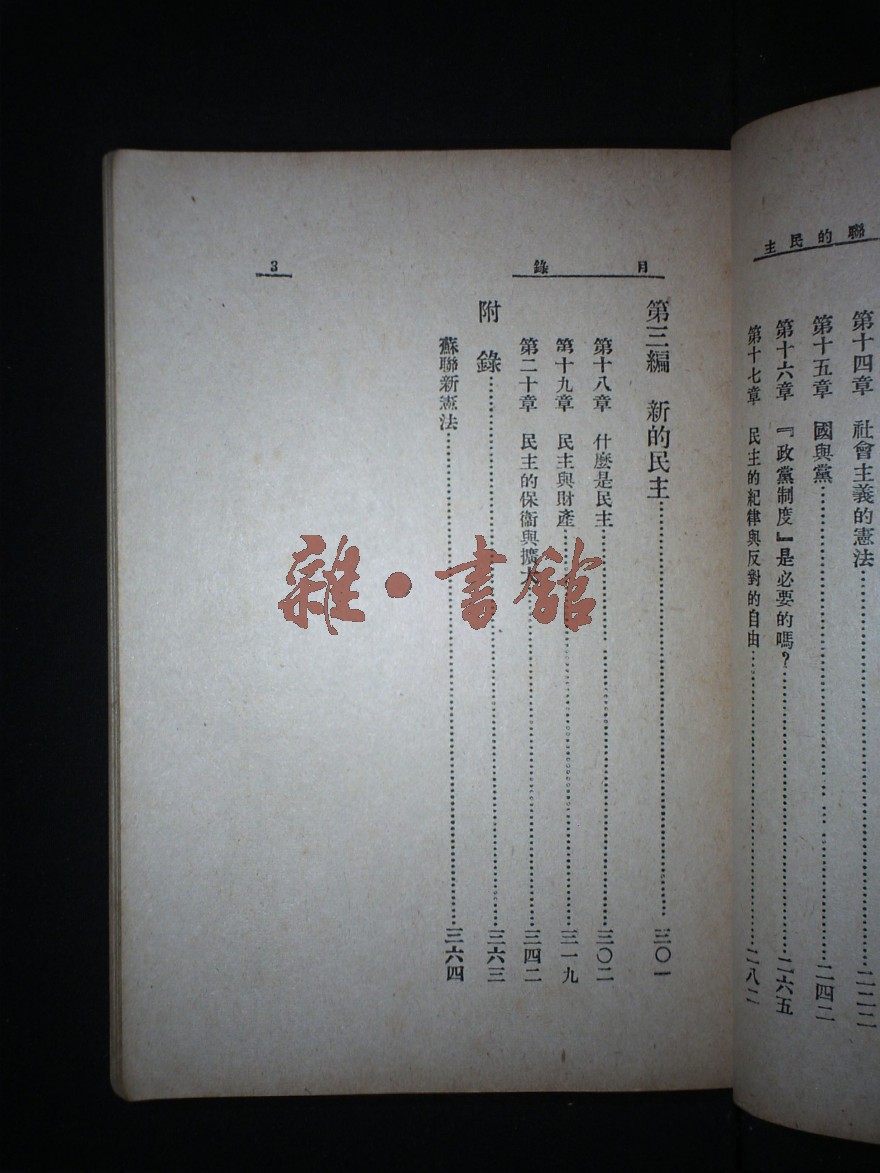 聯的民主
第十四章 社會主義的憲法……二二二
第十五章 國與黨……二四二
第十六章 『政黨制度』是必要的嗎？……二六五
第十七章 民主的紀律與反對的自由……二八二
目錄
3
第三編 新的民主……三〇一
第十八章 什麼是民主……三〇二
第十九章 民主與財產……三一九
第二十章 民主的保衞與擴大……三四二
附錄……三六三
蘇聯新憲法……三六四
雜·書館